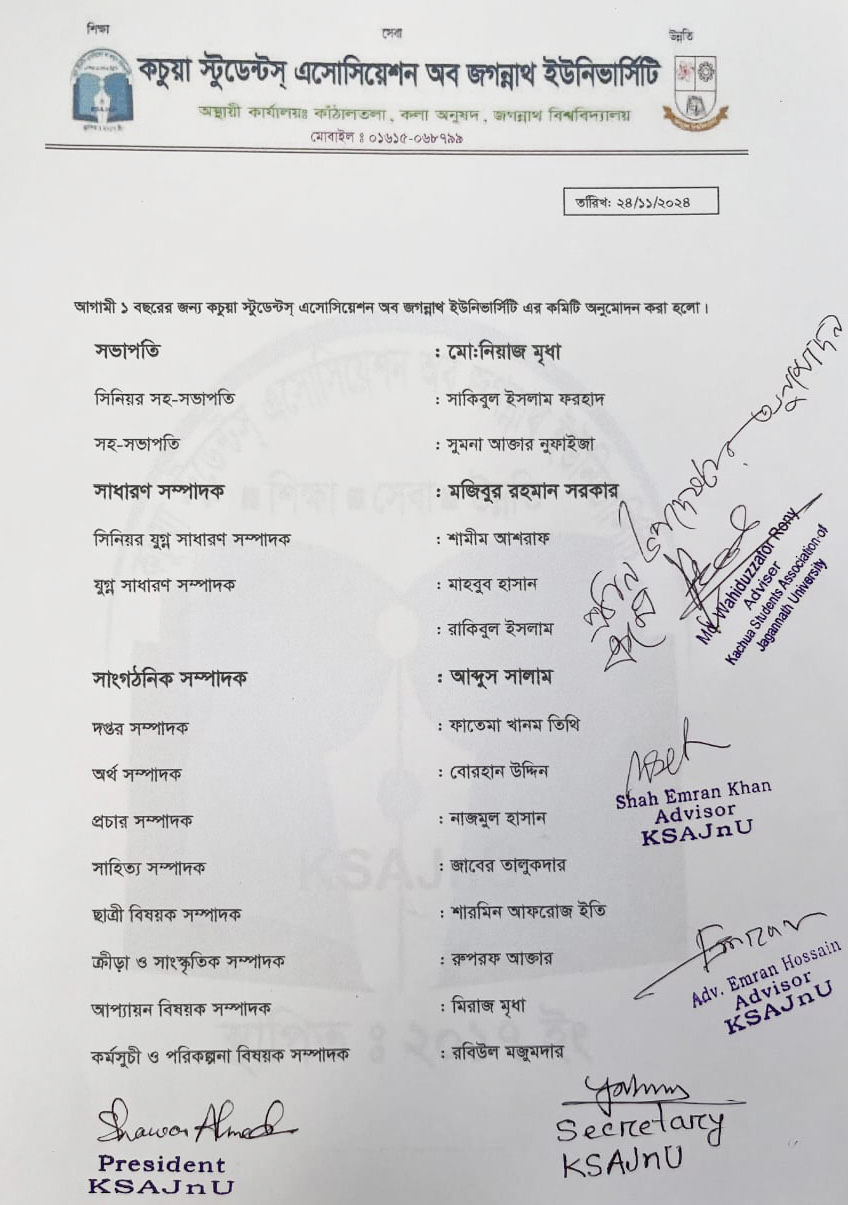 শিক্ষা
সেবা
উন্নতি
কচুয়া স্টুডেন্টস্ এসোসিয়েশন অব জগন্নাথ ইউনিভার্সিটি
অস্থায়ী কার্যালয়ঃ কাঁঠালতলা, কলা অনুষদ, জগন্নাথ বিশ্ববিদ্যালয়
মোবাইল : ০১৬১৫-০৬৮৭৯৯
তারিখ: ২৪/১১/২০২৪
আগামী ১ বছরের জন্য কচুয়া স্টুডেন্টস্ এসোসিয়েশন অব জগন্নাথ ইউনিভার্সিটি এর কমিটি অনুমোদন করা হলো।
সভাপতি : মো:নিয়াজ মৃধা
সিনিয়র সহ-সভাপতি : সাকিবুল ইসলাম ফরহাদ
সহ-সভাপতি : সুমনা আক্তার নুফাইজা
সাধারণ সম্পাদক : মজিবুর রহমান সরকার
সিনিয়র যুগ্ন সাধারণ সম্পাদক : শামীম আশরাফ
যুগ্ন সাধারণ সম্পাদক : মাহবুব হাসান
: রাকিবুল ইসলাম
সাংগঠনিক সম্পাদক : আব্দুস সালাম
দপ্তর সম্পাদক : ফাতেমা খানম তিথি
অর্থ সম্পাদক : বোরহান উদ্দিন
প্রচার সম্পাদক : নাজমুল হাসান
সাহিত্য সম্পাদক : জাবের তালুকদার
ছাত্রী বিষয়ক সম্পাদক : শারমিন আফরোজ ইতি
ক্রীড়া ও সাংস্কৃতিক সম্পাদক : রুপরফ আক্তার
আপ্যায়ন বিষয়ক সম্পাদক : মিরাজ মৃধা
কর্মসূচী ও পরিকল্পনা বিষয়ক সম্পাদক : রবিউল মজুমদার
Md. Wahiduzzafor Rony
Adviser
Kachua Students Association of
Jagannath University
Shah Emran Khan
Advisor
KSAJnU
Emran
Adv. Emran Hossain
Advisor
KSAJnU
President
KSAJnU
Secretary
KSAJnU